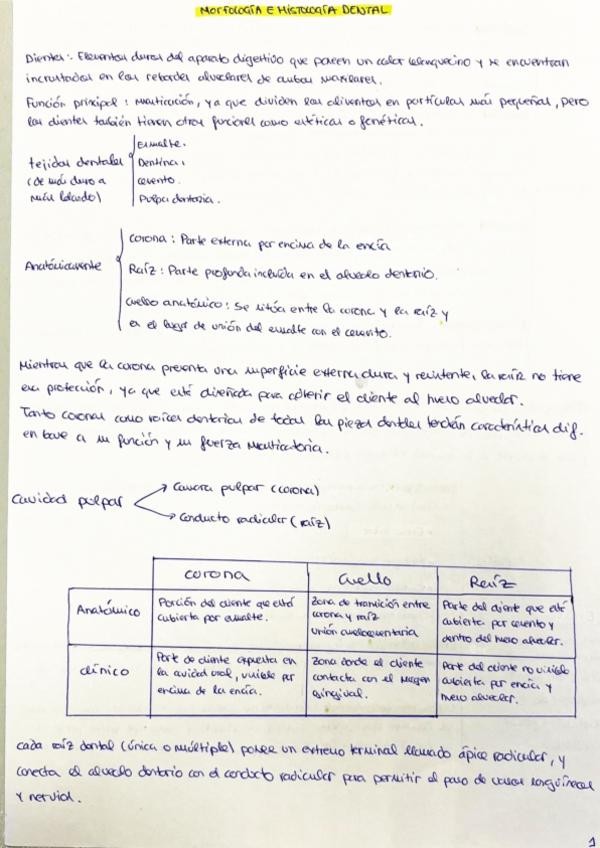 MORFOLOGÍA E HISTOLOGÍA DENTAL
Dientes: Elementos duros del aparato digestivo que poseen un color blanquecino y se encuentran
incrustados en los rebordes alveolares de ambos maxilares.
Función principal: masticación, ya que dividen los alimentos en partículas más pequeñas, pero
los dientes también tienen otras funciones como estéticas o fonéticas.
tejidos dentales
(de más duro a
más blando)
Esmalte.
Dentina.
cemento.
Pulpa dentaria.
Anatómicamente
corona: Parte externa por encima de la encía
Raíz: Parte profunda incluida en el alveolo dentario.
cuello anatómico: Se sitúa entre la corona y la raíz y
es el lugar de unión del esmalte con el cemento.
Mientras que la corona presenta una superficie externa dura y resistente, la raíz no tiene
esa protección, ya que está diseñada para adherir el diente al hueso alveolar.
Tanto coronas como raíces dentarias de todas las piezas dentales tendrán características dif.
en base a su función y su fuerza masticatoria.
Cavidad pulpar
Cámara pulpar (corona)
Conducto radicular (raíz)
corona Cuello Raíz
Anatómico
Porción del diente que está
cubierta por esmalte.
Zona de transición entre
corona y raíz
unión amelocementaria
Parte del diente que está
cubierta por cemento y
dentro del hueso alveolar.
clínico
Parte de diente expuesta en
la cavidad oral, visible por
encima de la encía.
Zona donde el diente
contacta con el margen
gingival.
Parte del diente no visible
cubierta por encía y
hueso alveolar.
cada raíz dental (única o múltiple) posee un extremo terminal llamado ápice radicular, y
conecta el alveolo dentario con el conducto radicular para permitir el paso de vasos sanguíneos
y nervios.
1